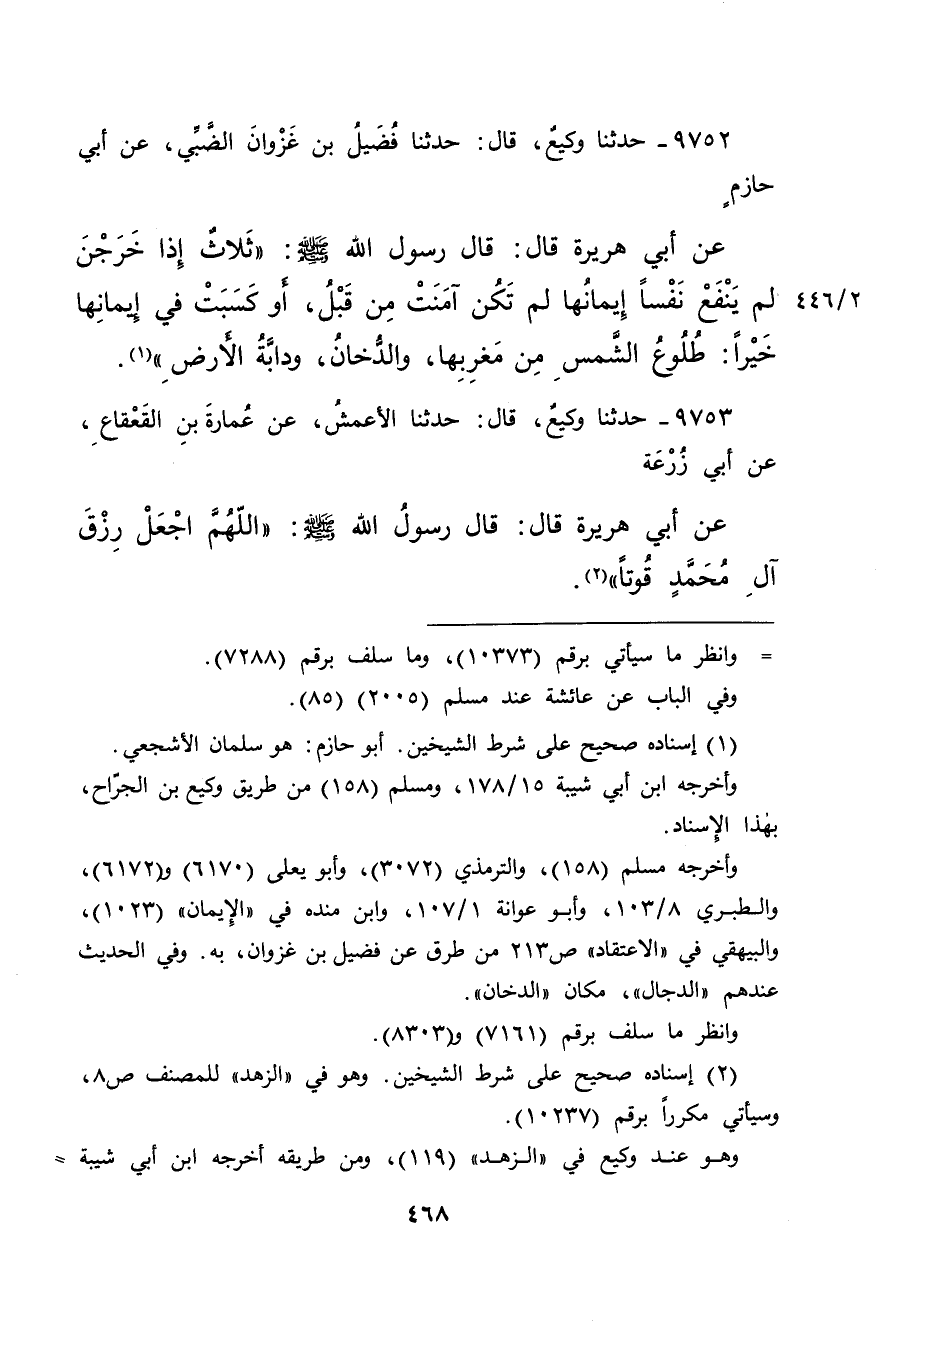 ٩٧٥٢ـ حدثنا وكيعٌ، قال: حدثنا فُضَيلُ بن غَزْوانَ الضَّبِّي، عن أبي
حازمٍ
عن أبي هريرة قال: قال رسول الله ﷺ: «ثَلاثٌ إِذا خَرَجْنَ
٤٤٦/٢ لم يَنْفَعْ نَفْساً إِيمانُها لم تَكُن آمَنَتْ مِن قَبْلُ، أَو كَسَبَتْ في إِيمانِها
خَيْراً: طُلُوعُ الشَّمسِ مِن مَغرِبِها، والدُّخانُ، ودابَّةُ الأَرضِ»(١).
٩٧٥٣ـ حدثنا وكيعٌ، قال: حدثنا الأعمشُ، عن عُمارةَ بنِ القَعْقاعِ،
عن أبي زُرْعَة
عن أبي هريرة قال: قال رسولُ الله ﷺ: «اللّهُمَّ اجْعَلْ رِزْقَ
آلِ مُحَمَّدٍ قُوتاً»(٢).
= وانظر ما سيأتي برقم (١٠٣٧٣)، وما سلف برقم (٧٢٨٨).
وفي الباب عن عائشة عند مسلم (٢٠٠٥) (٨٥).
(١) إسناده صحيح على شرط الشيخين. أبو حازم: هو سلمان الأشجعي.
وأخرجه ابن أبي شيبة ١٧٨/١٥، ومسلم (١٥٨) من طريق وكيع بن الجرّاح،
بهٰذا الإِسناد.
وأخرجه مسلم (١٥٨)، والترمذي (٣٠٧٢)، وأبو يعلى (٦١٧٠) و(٦١٧٢)،
والطبري ١٠٣/٨، وأبو عوانة ١٠٧/١، وابن منده في «الإِيمان» (١٠٢٣)،
والبيهقي في «الاعتقاد» ص٢١٣ من طرق عن فضيل بن غزوان، به. وفي الحديث
عندهم «الدجال»، مكان «الدخان».
وانظر ما سلف برقم (٧١٦١) و(٨٣٠٣).
(٢) إسناده صحيح على شرط الشيخين. وهو في «الزهد» للمصنف ص٨،
وسيأتي مكرراً برقم (١٠٢٣٧).
وهو عند وكيع في «الزهد» (١١٩)، ومن طريقه أخرجه ابن أبي شيبة =
٤٦٨